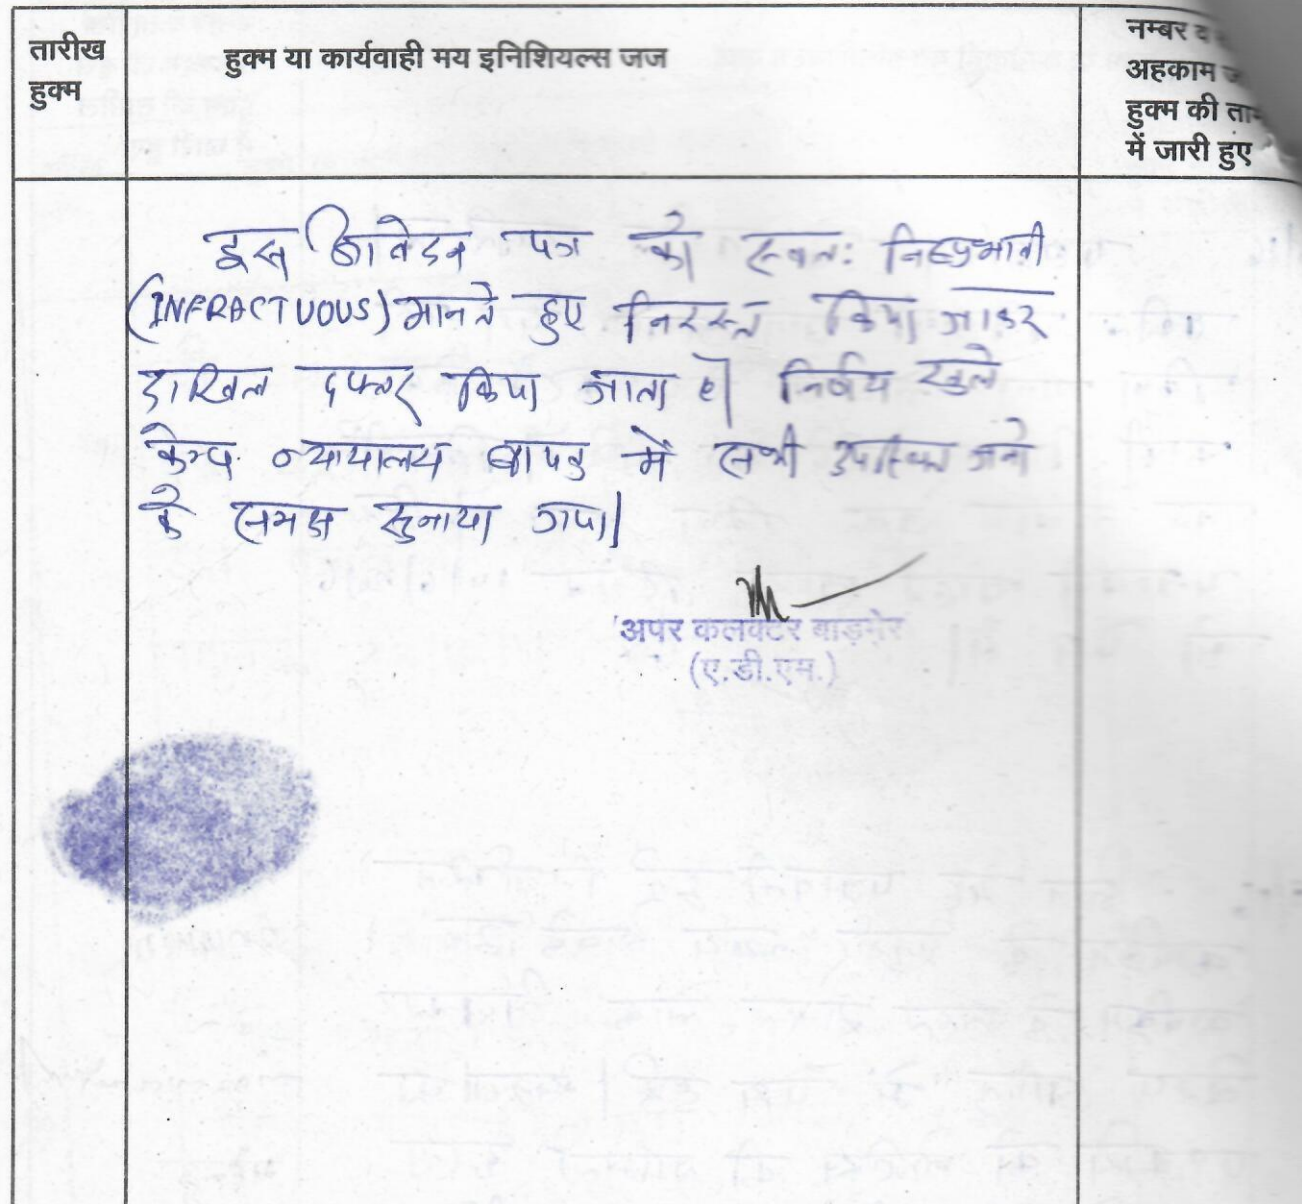 तारीख
हुक्म
हुक्म या कार्यवाही मय इनिशियल्स जज
नम्बर व
अहकाम ज
हुक्म की ता
में जारी हुए
इस आवेदन पत्र को स्वतः निष्प्रभावी
(INFRACTUOUS) मानते हुए निरस्त किया जाकर
दाखिल दफ्तर किया जाता है। निर्णय खुले
केम्प न्यायालय में सभी उपस्थित जनो
के समक्ष सुनाया गया।
अपर कलक्टर बाड़मेर
(ए.डी.एम.)